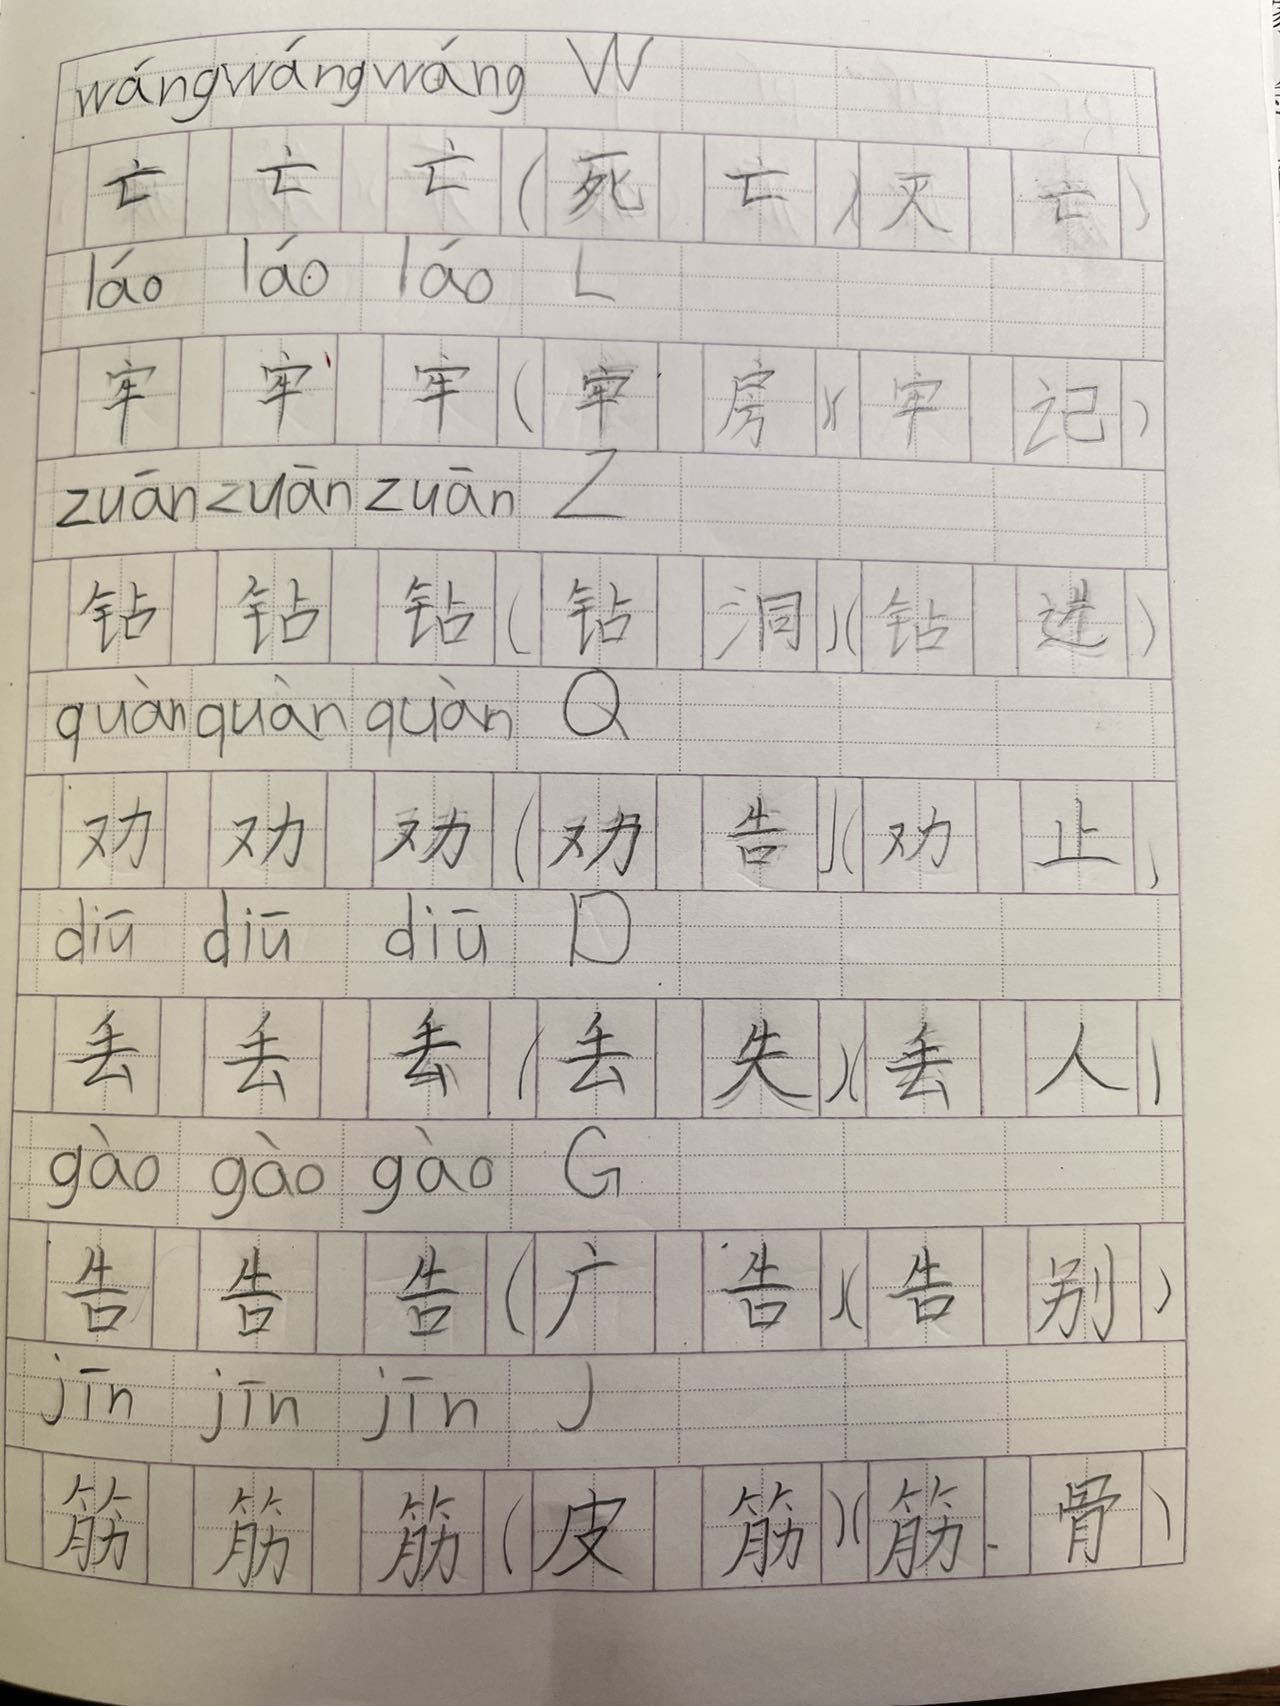 wángwángwáng W
亡 亡 亡 (死 亡)(灭 亡)
láo láo láo L
牢 牢 牢 (牢 房)(牢 记)
zuān zuān zuān Z
钻 钻 钻 (钻 洞)(钻 进)
quàn quàn quàn Q
劝 劝 劝 (劝 告)(劝 止)
diū diū diū D
丢 丢 丢 (丢 失)(丢 人)
gào gào gào G
告 告 告 (广 告)(告 别)
jīn jīn jīn J
筋 筋 筋 (皮 筋)(筋 骨)